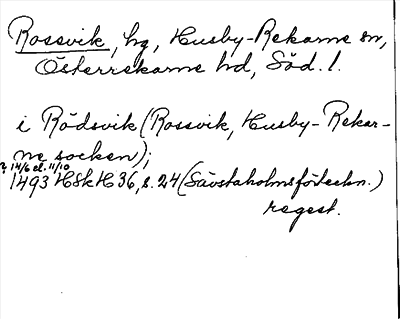 Rossvik, hg, Husby-Rekarne sn,
Österrekarne hd, Söd. l.
i Rödsvik (Rossvik, Husby-Rekar-
ne socken);
? 14/6 el. 11/10
1493 HSk H 36, s. 24 (Sävstaholmsförteckn.)
regest.